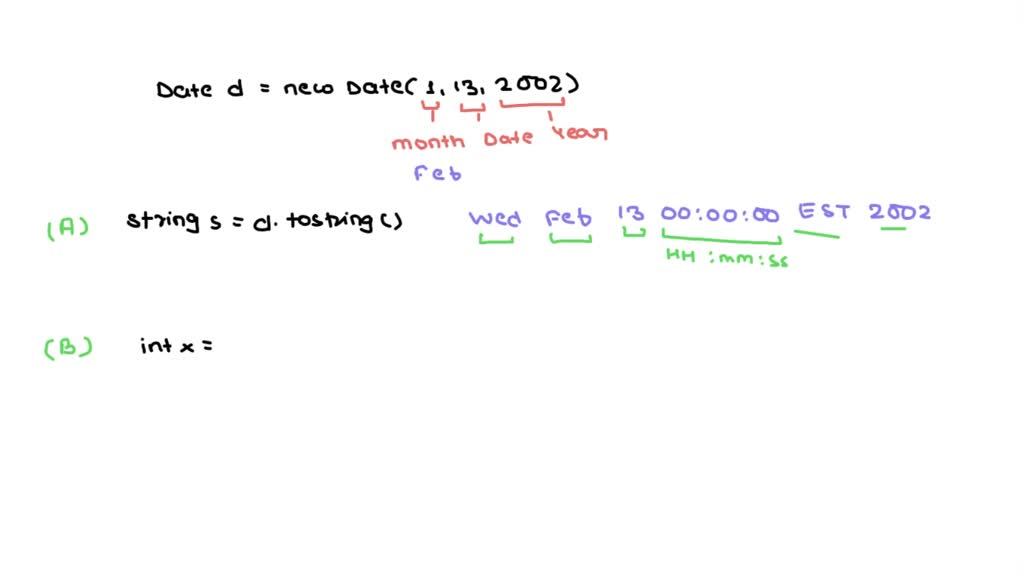 Date d = new Date( 1, 13, 2002)
month Date Year
Feb
(A) string s = d. tostring() Wed Feb 13 00:00:00 EST 2002
HH :mm:ss
(B) int x =